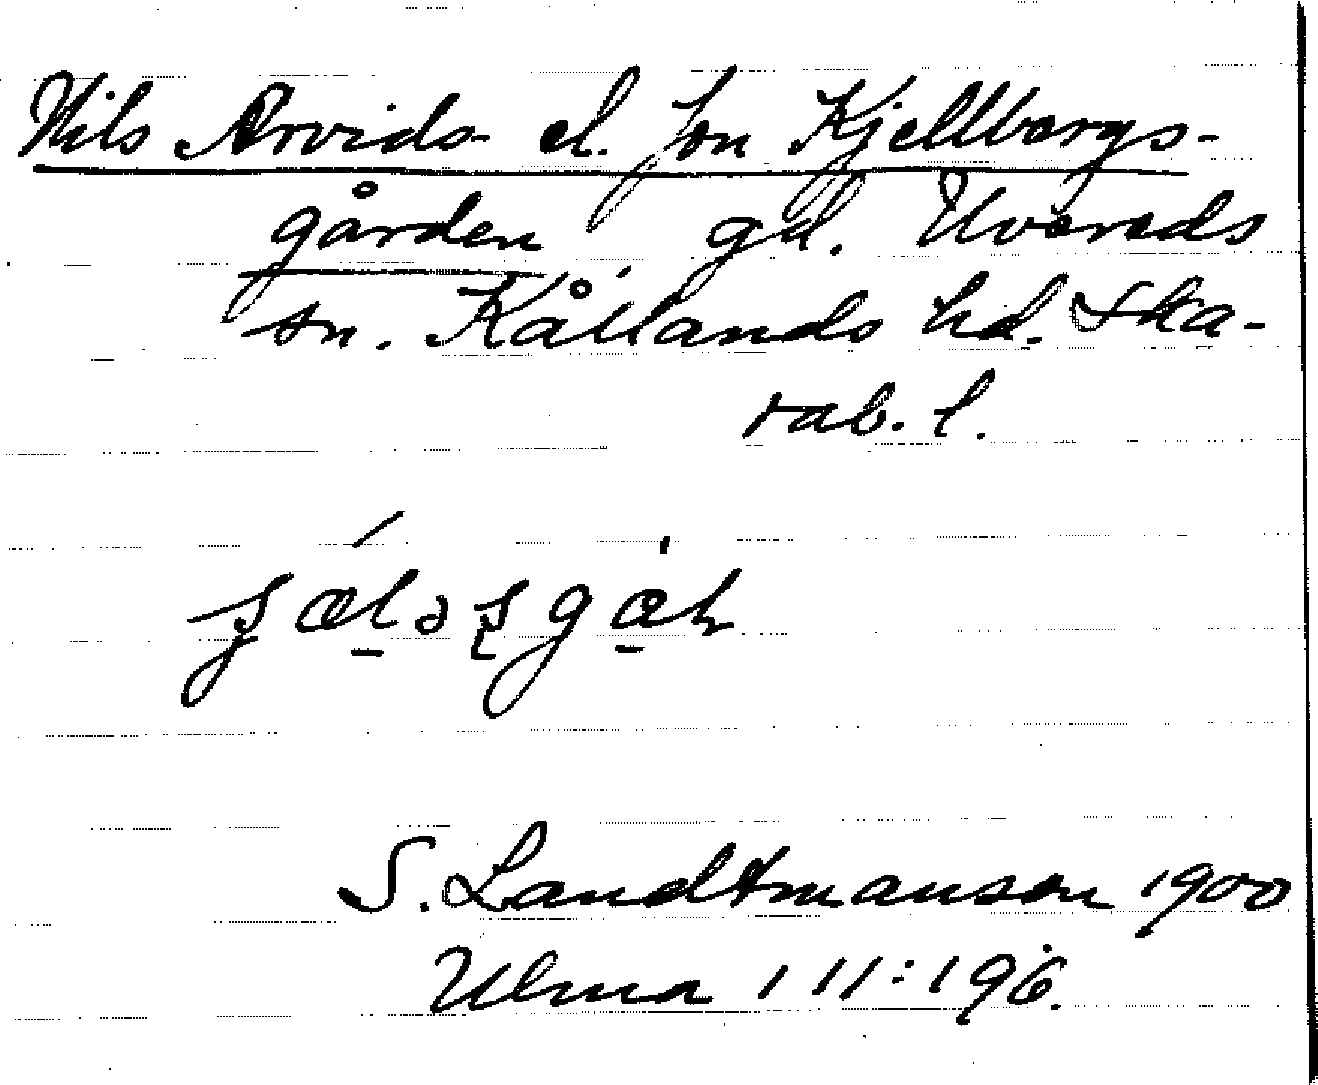 Nils Arvids- el. Jon Kjellbergs-
gården gd. Uvereds
sn. Kållands hd. Ska-
rab. l.
S. Landtmanson 1900
Ulma 111:196.